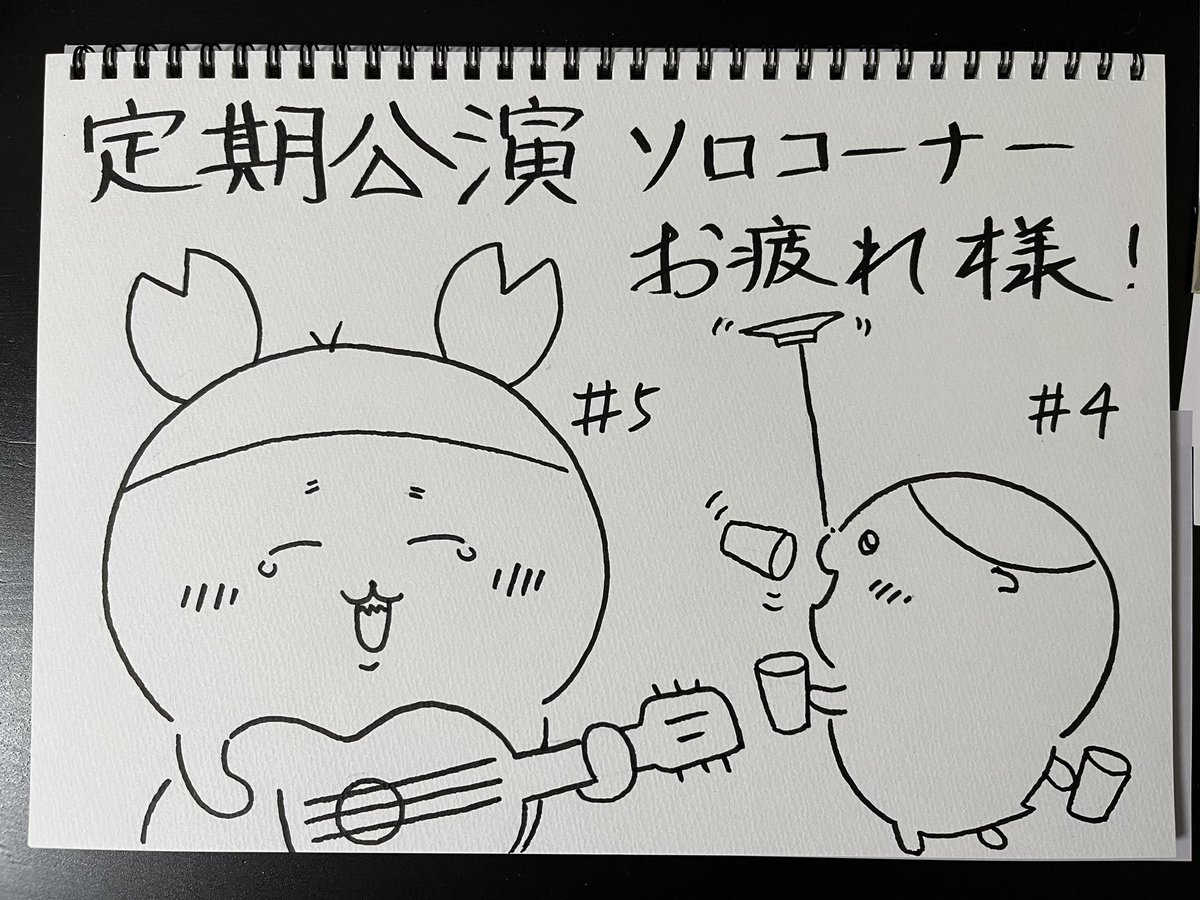 定期公演 ソロコーナー
お疲れ様!
#5
#4